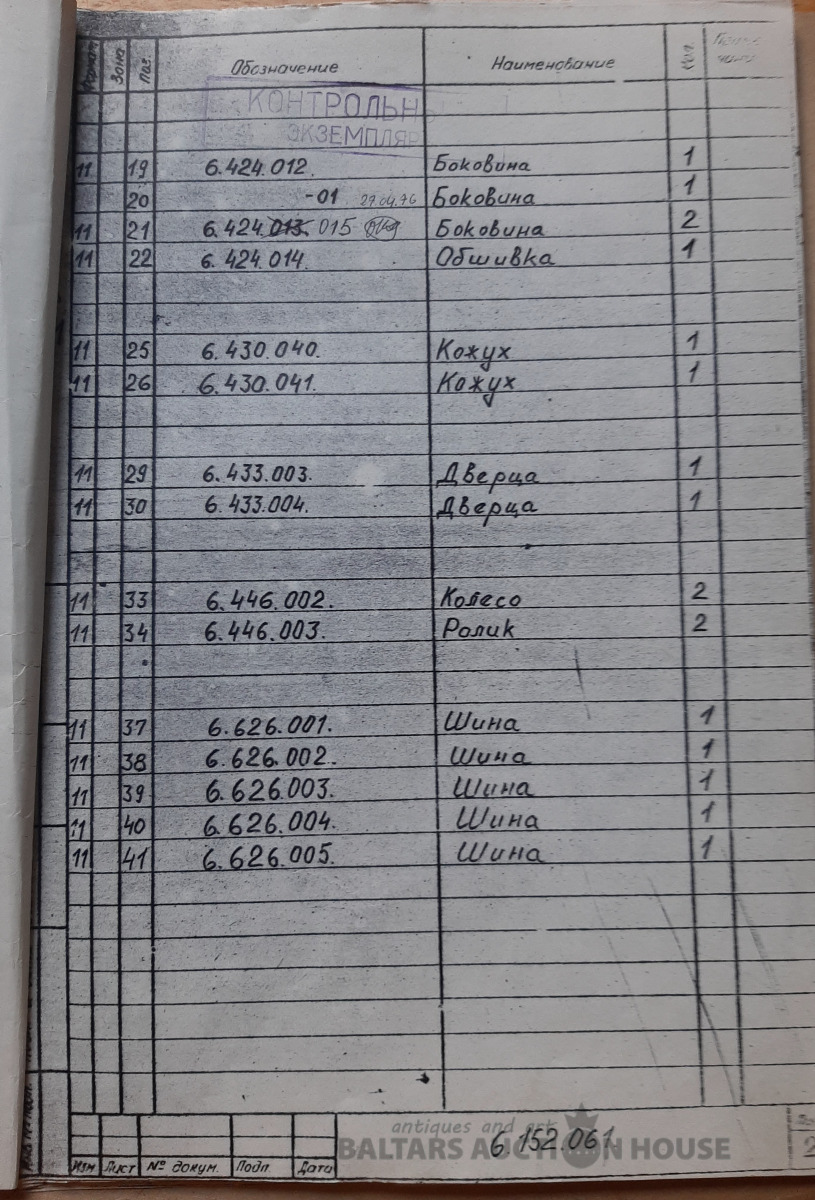 Формат Зона Поз. Обозначение Наименование Кол. Приме чание
КОНТРОЛЬН
ЭКЗЕМПЛЯР
11 19 6.424.012. Боковина 1
20 -01 29.04.76 Боковина 1
11 21 6.424.013. 015 Боковина 2
11 22 6.424.014. Обшивка 1
11 25 6.430.040. Кожух 1
11 26 6.430.041. Кожух 1
11 29 6.433.003. Дверца 1
11 30 6.433.004. Дверца 1
11 33 6.446.002. Колесо 2
11 34 6.446.003. Ролик 2
11 37 6.626.001. Шина 1
11 38 6.626.002. Шина 1
11 39 6.626.003. Шина 1
11 40 6.626.004. Шина 1
11 41 6.626.005. Шина 1
antiques and art
BALTARS AUCTION HOUSE
6.152.061
2
Изм Лист № докум. Подп. Дата